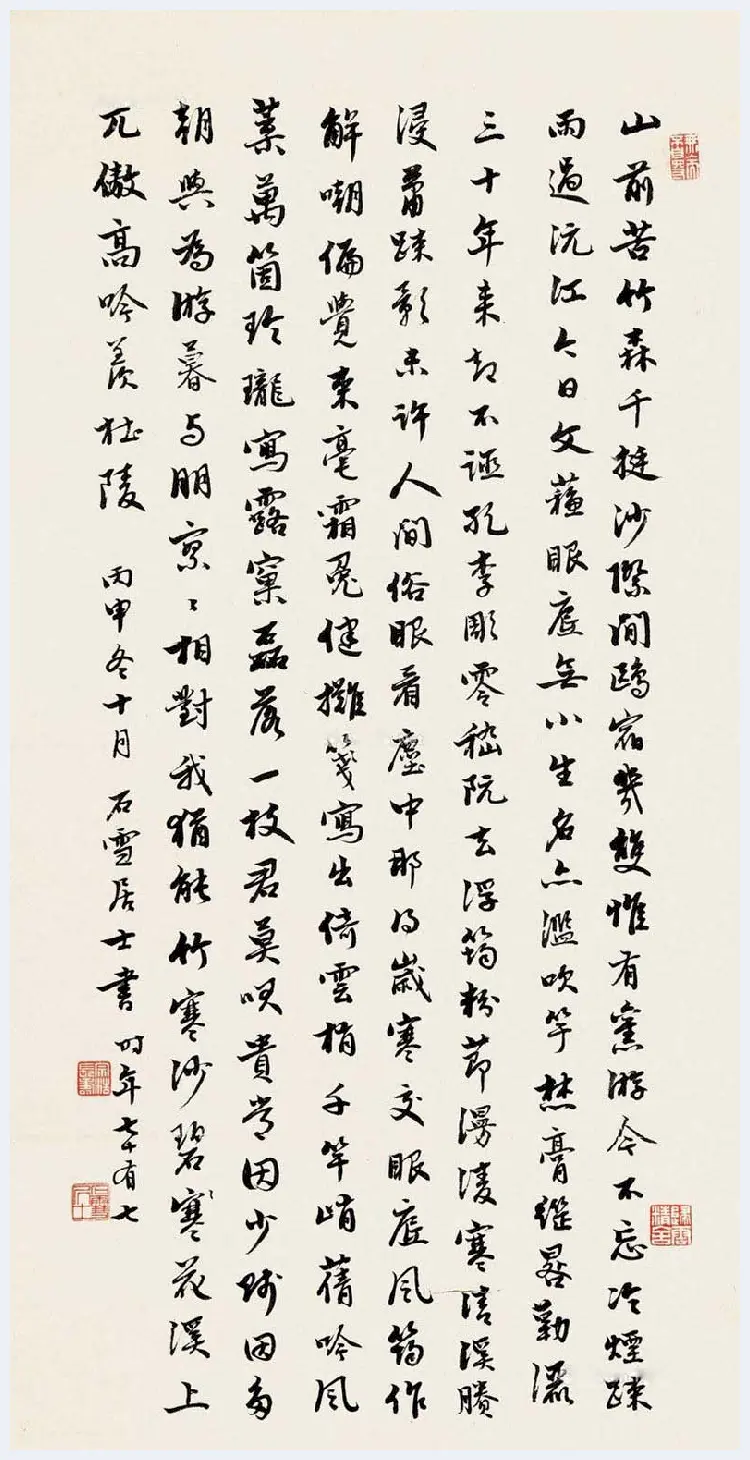 山前苦竹森千挺沙際間鷗宿幾雙惟有游今不忘冷煙疎
雨過沅江今日文蘓眼底無小生名亦濫吹竽焚膏繼晷勤灑
三十年來却不誣孔李彫零嵇阮去浮筠粉節漫凌寒清溪賸
浸蕭疎影未許人間俗眼看塵中那得歲寒交眼底風筠作
解嘲偏覺束毫霜兔健攤箋寫出倚雲梢千竿峭蒨吟風
葉萬箇玲瓏寫露窠磊落一枝君莫哂貴常因少賤因多
朝與為游暮与朋寥〻相對我猶能竹寒沙碧寒花溪上
兀傲高吟羨杜陵 丙申冬十月 石雪居士書 時年七十有七